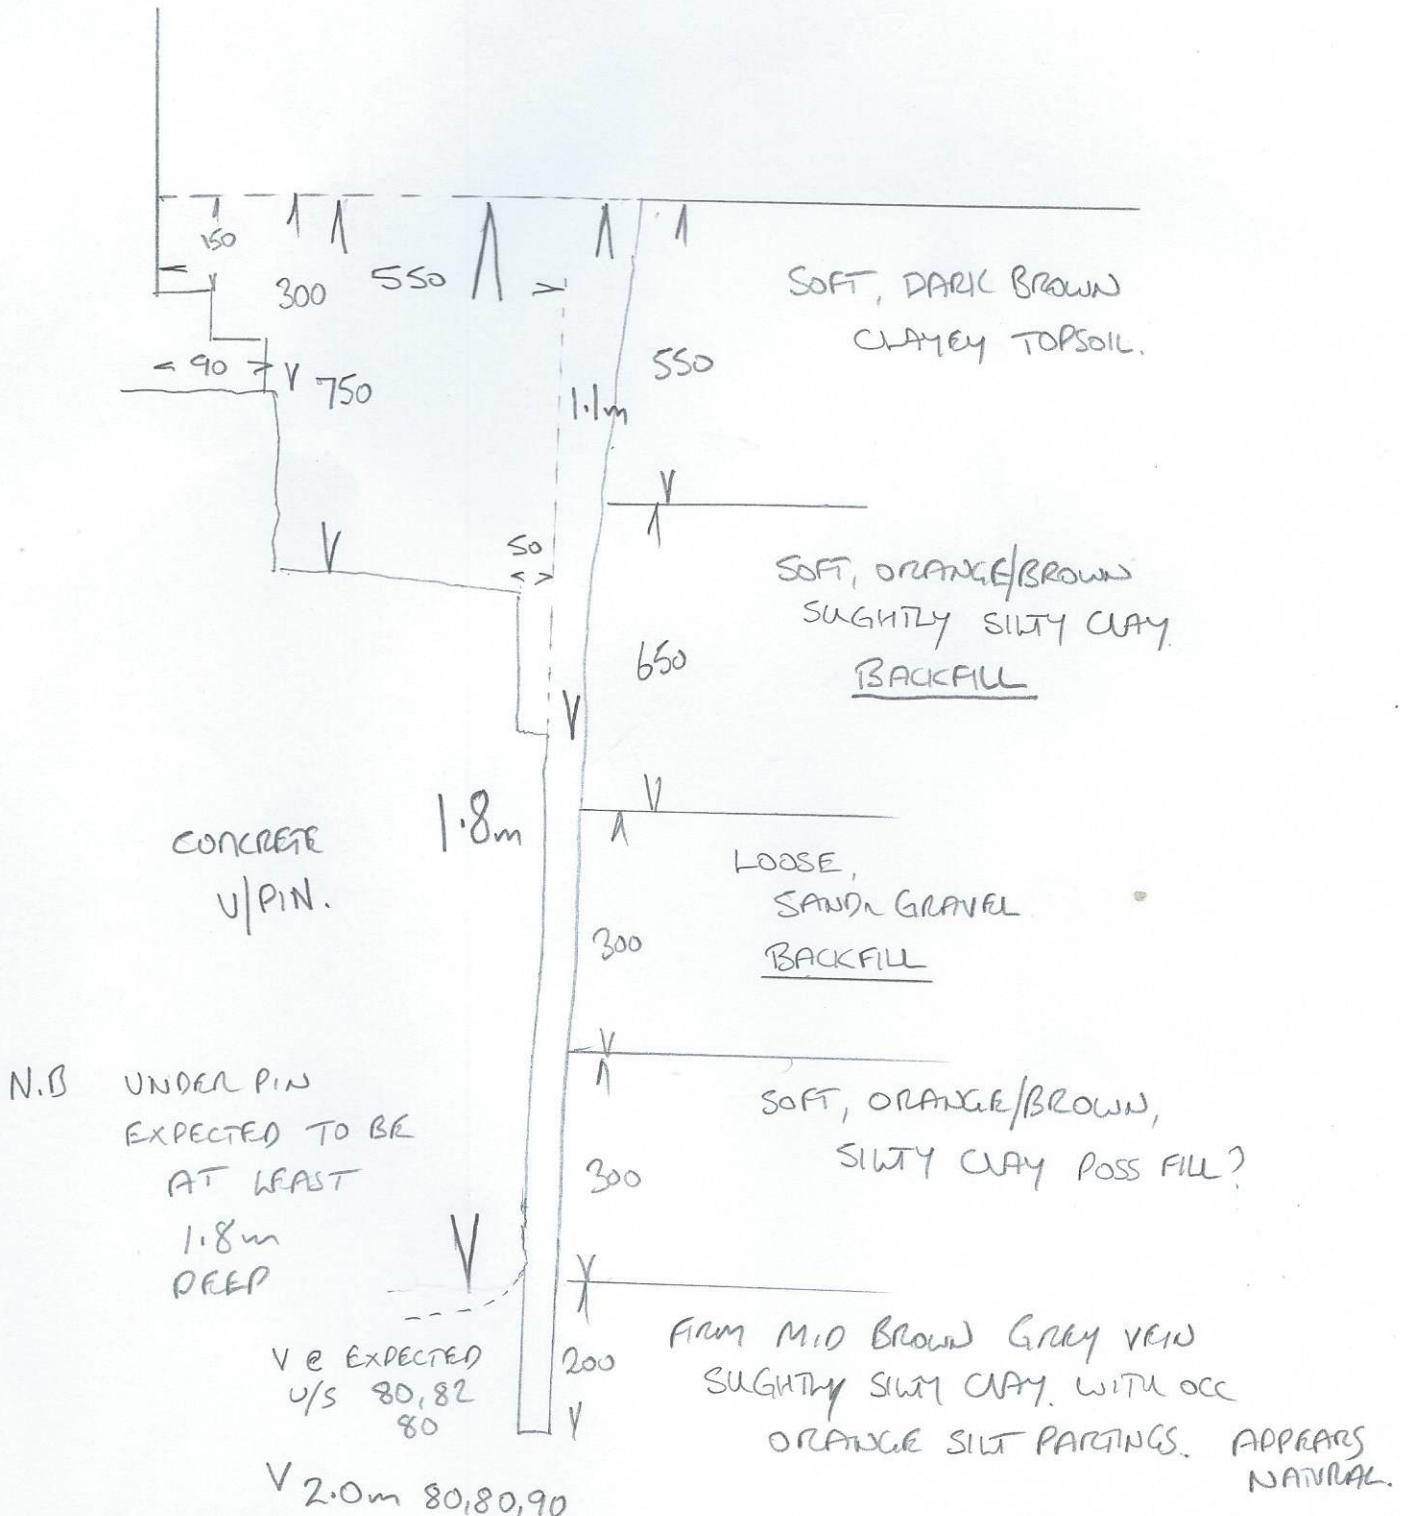 150
300
550
90
750
1.1m
50
550
SOFT, DARK BROWN
CLAYEY TOPSOIL.
650
SOFT, ORANGE/BROWN
SLIGHTLY SILTY CLAY
BACKFILL
CONCRETE
U/PIN.
1.8m
300
LOOSE,
SANDn GRAVEL
BACKFILL
N.B UNDERPIN
EXPECTED TO BE
AT LEAST
1.8m
DEEP
300
SOFT, ORANGE/BROWN,
SILTY CLAY POSS FILL?
V @ EXPECTED
U/S 80,82
80
V 2.0m 80,80,90
200
FIRM MID BROWN GREY VEIN
SLIGHTLY SILTY CLAY. WITH OCC
ORANGE SILT PARTINGS. APPEARS
NATURAL.